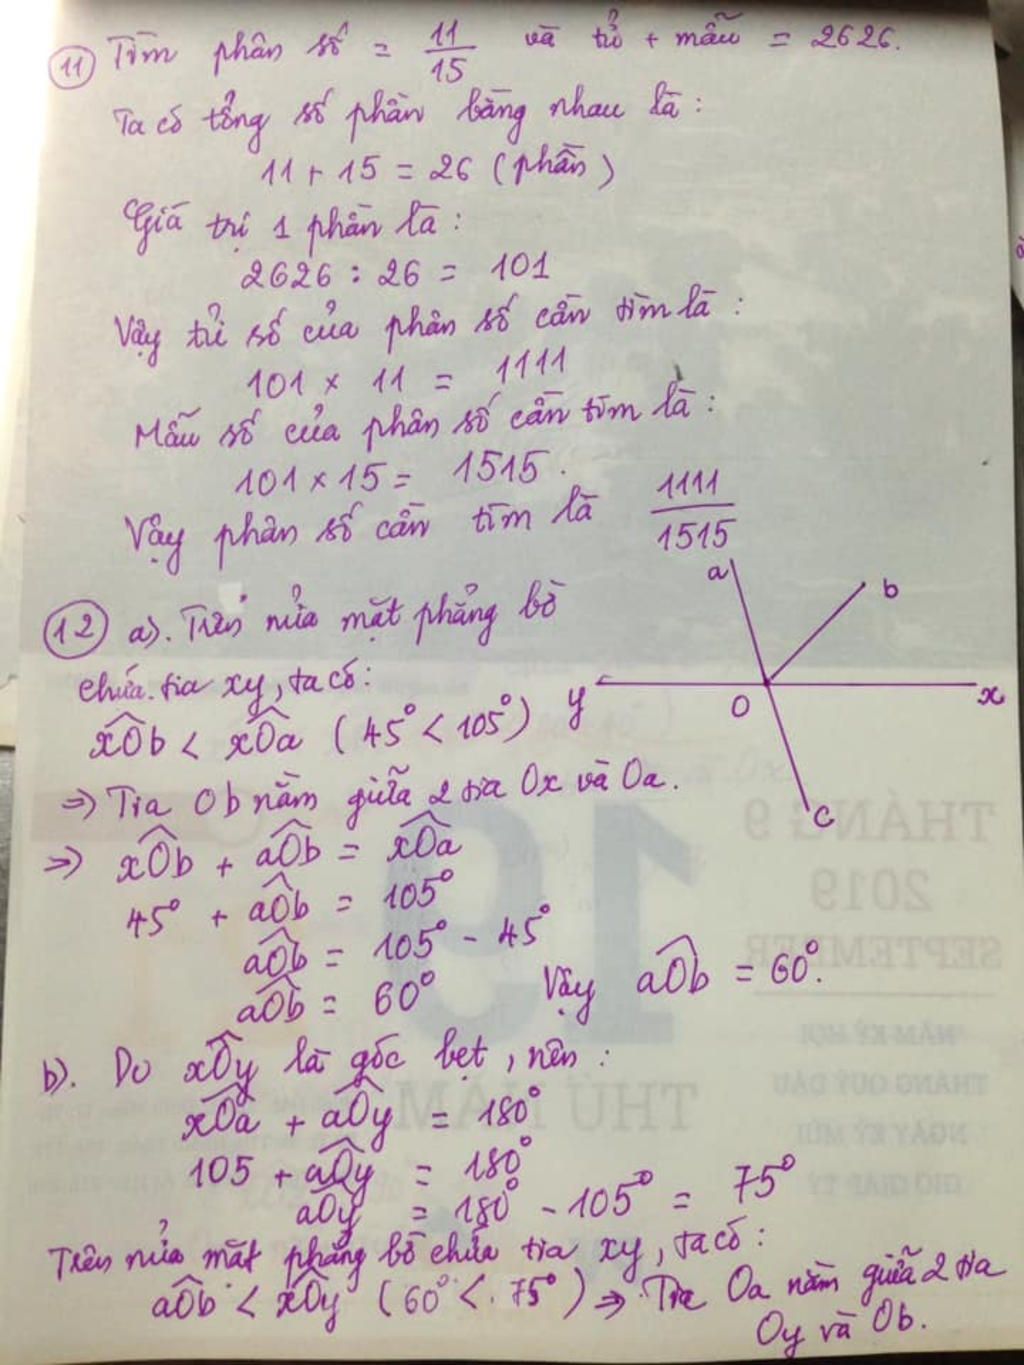 11 Tìm phân số = 11/15 và tử + mẫu = 2626.
Ta có tổng số phần bằng nhau là :
11 + 15 = 26 ( phần )
Giá trị 1 phần là :
2626 : 26 = 101
Vậy tử số của phân số cần tìm là :
101 x 11 = 1111
Mẫu số của phân số cần tìm là :
101 x 15 = 1515 .
Vậy phân số cần tìm là 1111/1515
12 a). Trên nửa mặt phẳng bờ
chứa tia xy, ta có :
xÔb < xÔa ( 45° < 105° )
=> Tia Ob nằm giữa 2 tia Ox và Oa.
=> xÔb + aÔb = xÔa
45° + aÔb = 105°
aÔb = 105° - 45°
aÔb = 60° Vậy aÔb = 60°.
a
b
y
O
x
c
b). Do xÔy là góc bẹt , nên :
xÔa + aÔy = 180°
105 + aÔy = 180°
aÔy = 180° - 105° = 75°
Trên nửa mặt phẳng bờ chứa tia xy, ta có :
aÔb < xÔy ( 60° < . 75° ) => Tia Oa nằm giữa 2 tia
Oy và Ob.
THÁNG 9
2019
SEPTEMBER
19
THỨ NĂM
NĂM KỶ HỢI
THÁNG QUÝ DẬU
NGÀY KỶ MÙI
GIỜ GIÁP TÝ